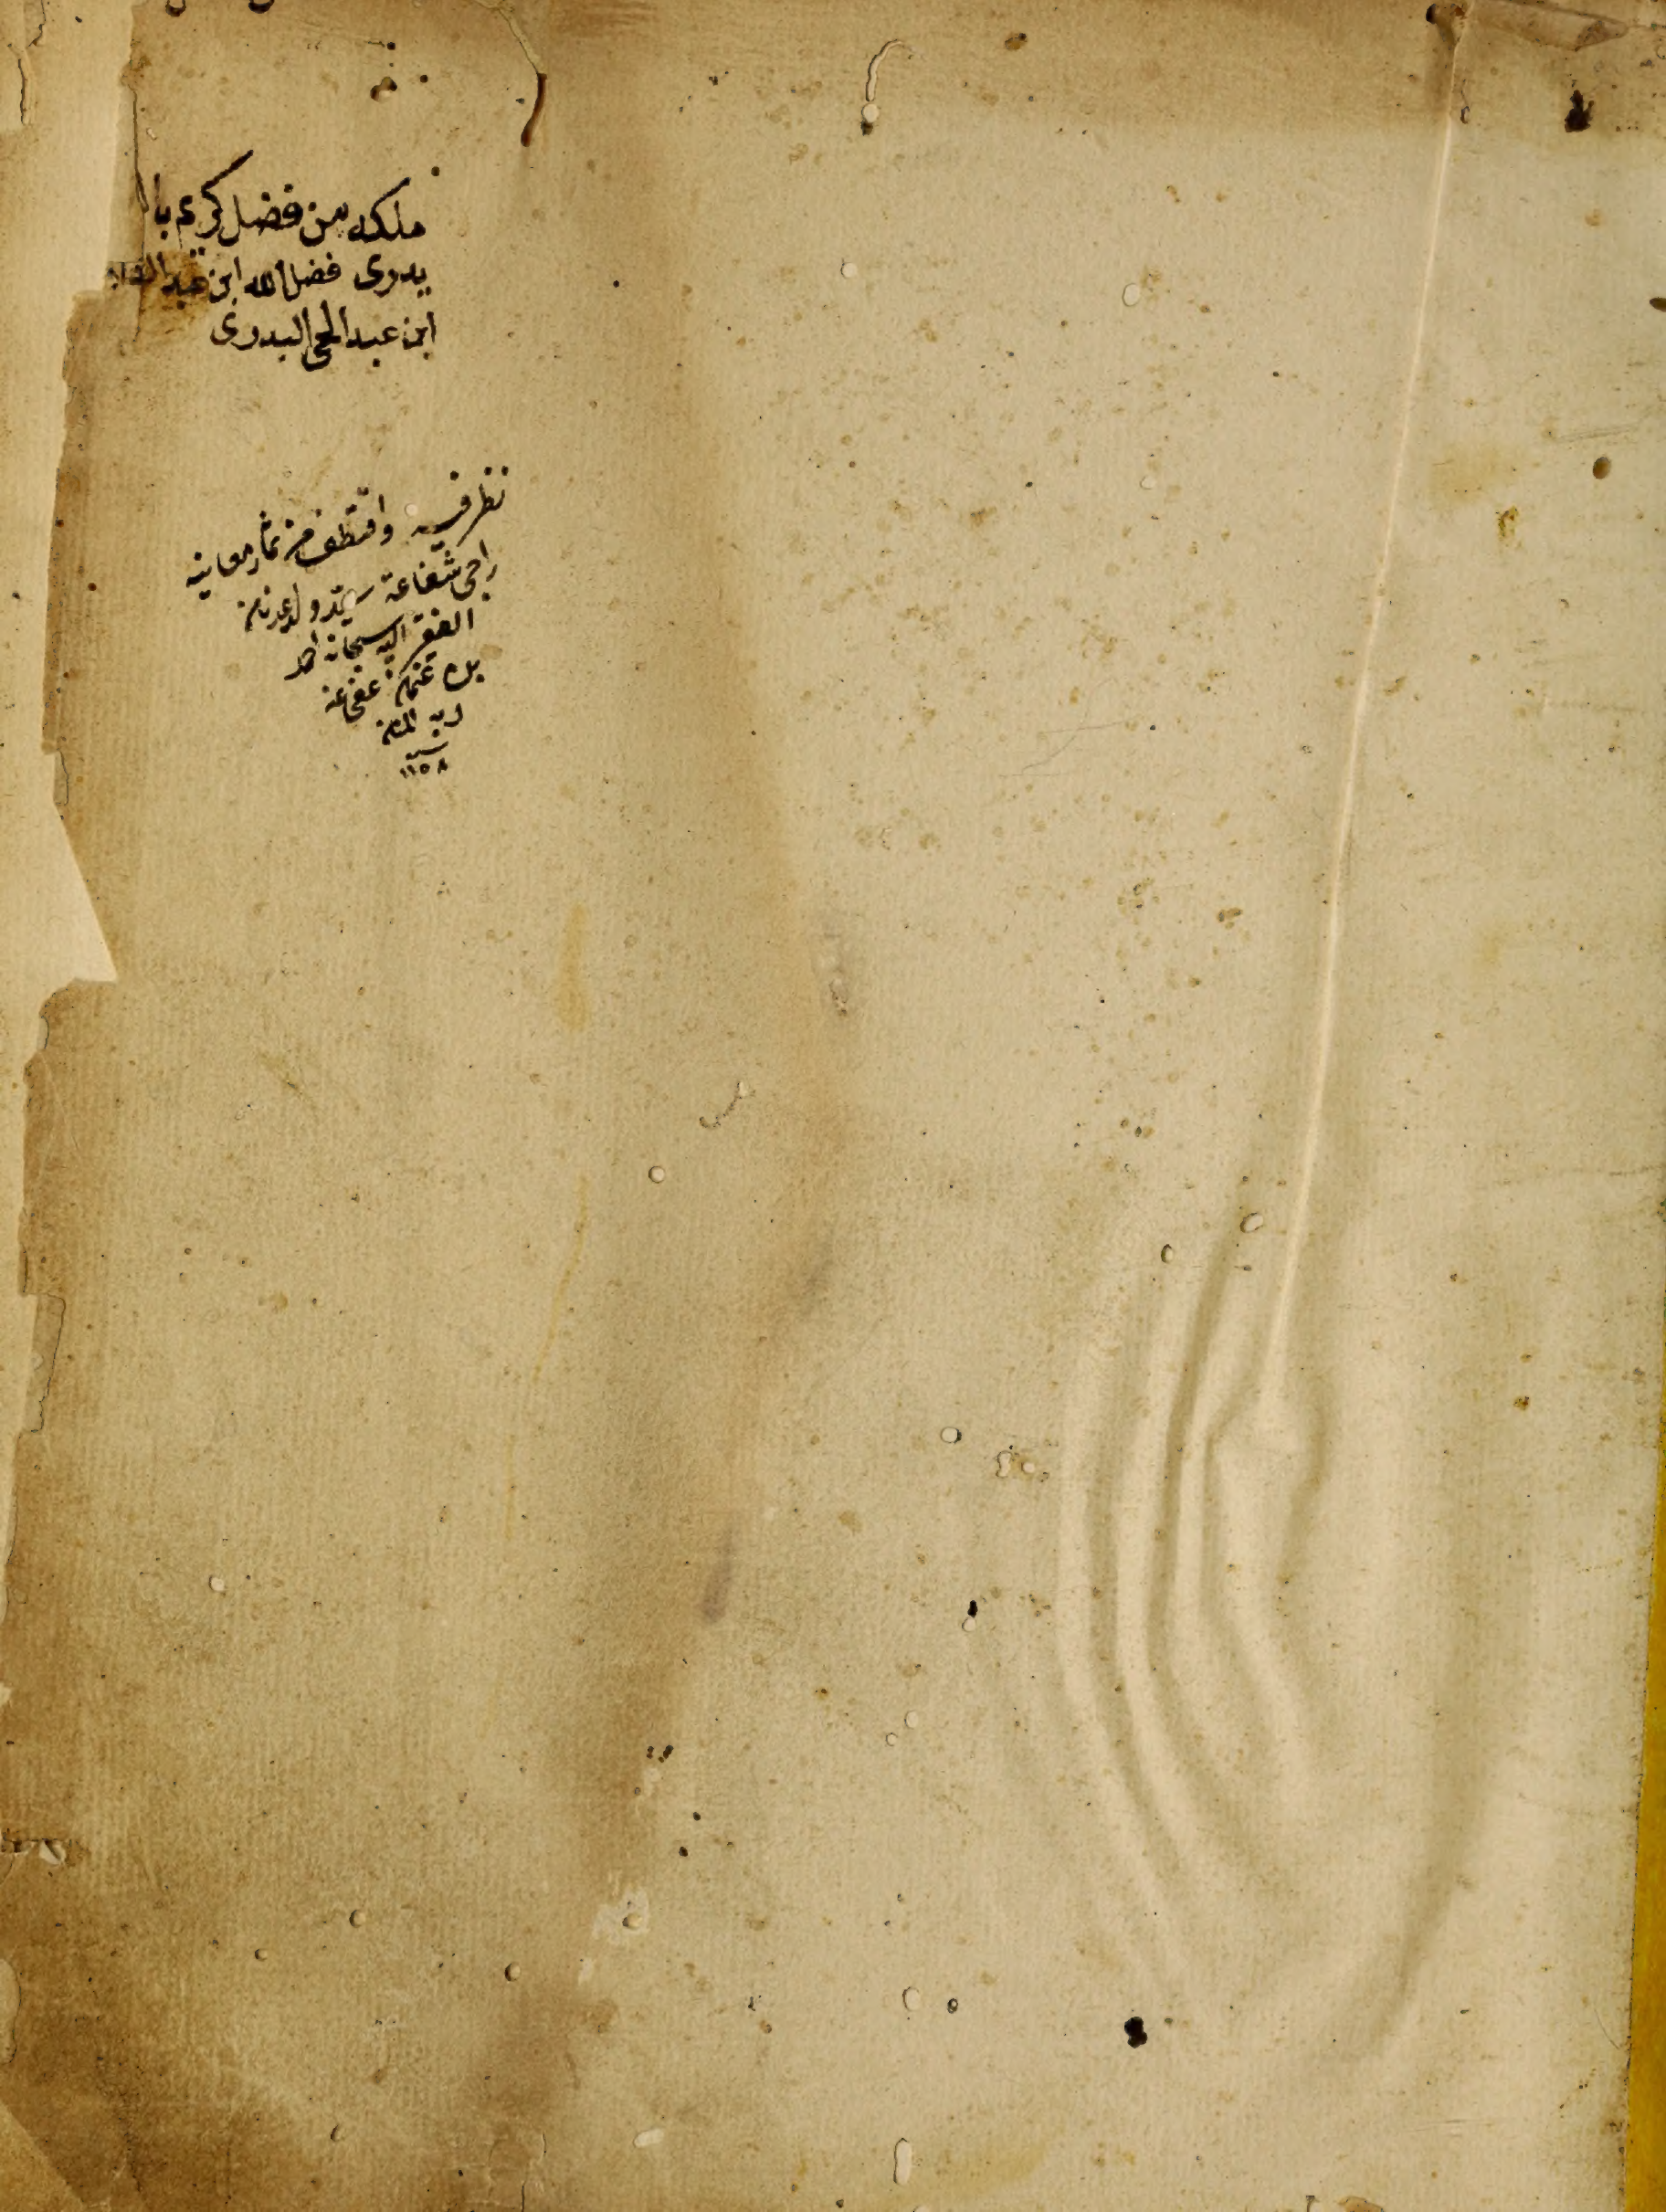 ملكه من فضل كريم با
يدوى فضل الله ابن عبد
ابن عبد الحى البدوى
نظر فيه واقتطف من ثمار معانيه
راجى شفاعة سيد ولد عدنان
الفقير اليه سبحانه احمد
بن عثمان عفى عنه
المنان
سنة
١١٥٨